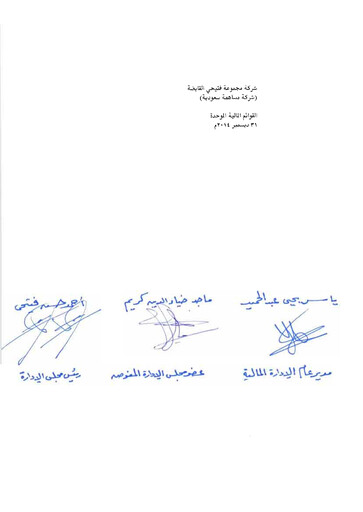 شركة مجموعة فتيحي القابضة
(شركة مساهمة سعودية)
القوائم المالية الموحدة
٣١ ديسمبر ٢٠١٤م
ياسر يحيى عبدالحميد
ماجد ضياء الدين كريم
أحمد حسن فتيحي
مدير عام الإدارة المالية
عضو مجلس الإدارة المفوض
رئيس مجلس الإدارة